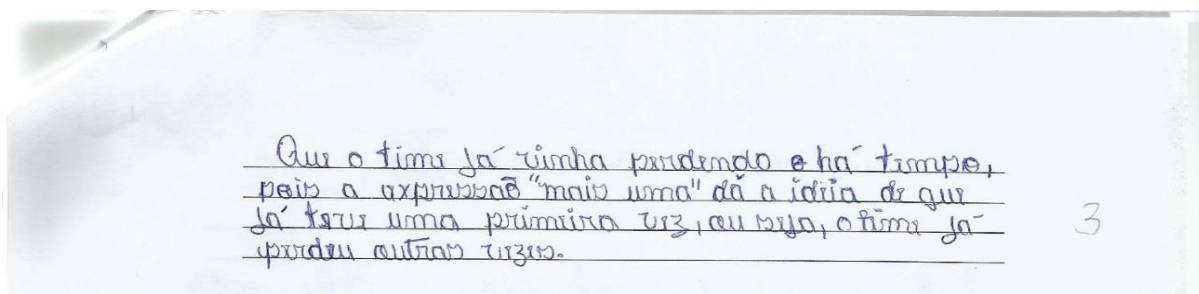 Que o time já vinha perdendo e há tempo,
pois a expressão "mais uma" dá a idéia de que
já teve uma primeira vez, ou seja, o time já
perdeu outras vezes.
3